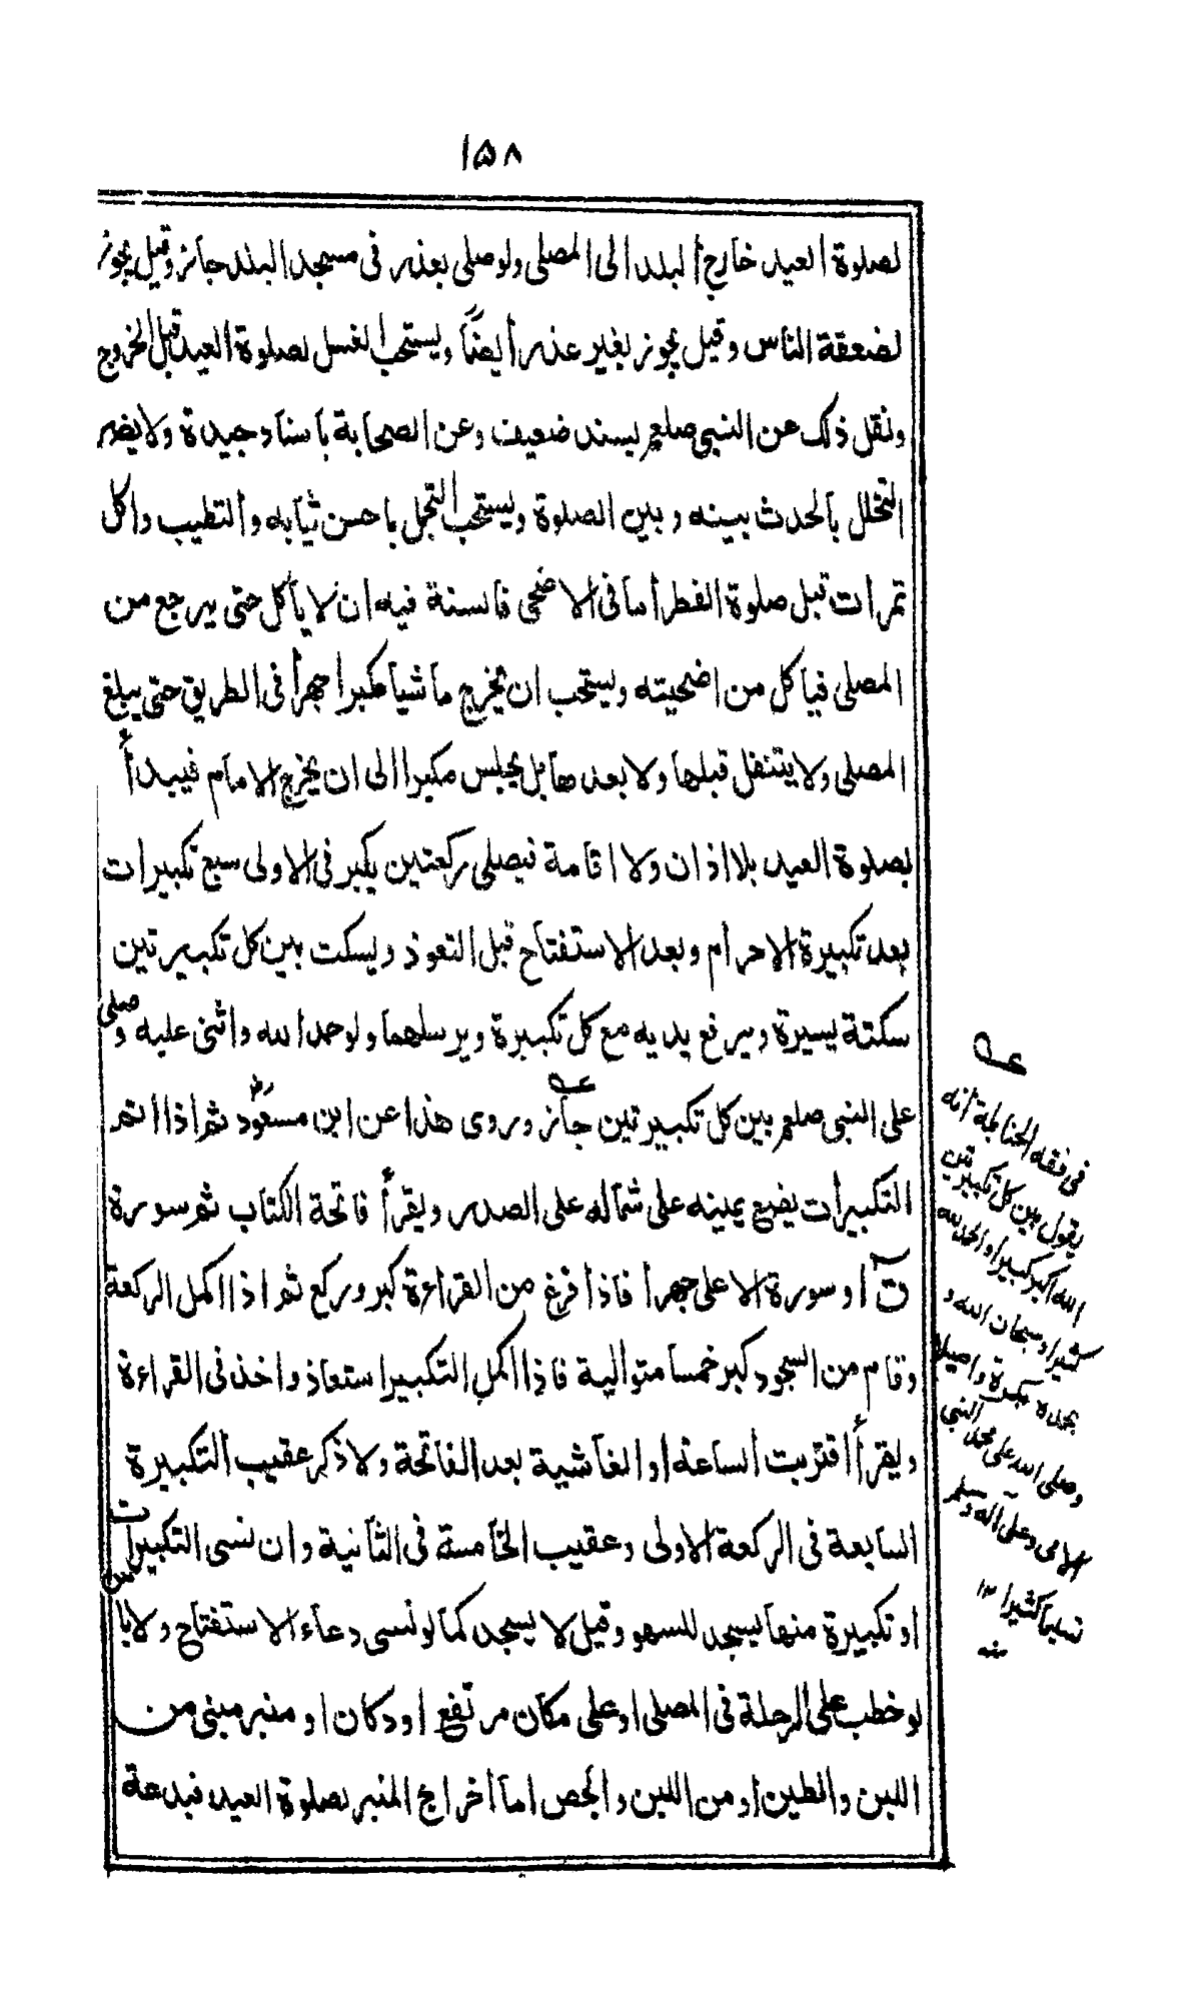 ١٥٨
لصلوة العيد خارج البلد الى المصلى ولو صلى بعذر فى مسجد البلد جاز وقيل يجوز
لضعفة الناس وقيل يجوز بغير عذر أيضاً ويستحب الغسل لصلوة العيد قبل الخروج
ونقل ذلك عن النبى صلعم بسند ضعيف وعن الصحابة باسناد جيدة ولا يضر
التخلل بالحدث بينه وبين الصلوة ويستحب التجمل باحسن ثيابه والتطيب واكل
تمرات قبل صلوة الفطر أما فى الاضحى فالسنة فيه ان لا ياكل حتى يرجع من
المصلى فياكل من اضحيته ويستحب ان يخرج ماشيا مكبرا جهرا فى الطريق حتى يبلغ
المصلى ولا يتنفل قبلها ولا بعدها بل يجلس مكبرا الى ان يخرج الامام فيبدأ
بصلوة العيد بلا اذان ولا اقامة فيصلى ركعتين يكبر فى الاولى سبع تكبيرات
بعد تكبيرة الاحرام وبعد الاستفتاح قبل التعوذ ويسكت بين كل تكبيرتين
سكتة يسيرة ويرفع يديه مع كل تكبيرة ويرسلهما ولو حمد الله واثنى عليه وصلى
على النبى صلعم بين كل تكبيرتين جاز وروى هذا عن ابن مسعود رض ثم اذا اتم
التكبيرات يضع يمينه على شماله على الصدر ويقرأ فاتحة الكتاب ثم سورة
ق او سورة الاعلى جهرا فاذا فرغ من القراءة كبر وركع ثم اذا اكمل الركعة
وقام من السجود كبر خمسا متوالية فاذا اكمل التكبير استعاذ واخذ فى القراءة
ويقرأ اقتربت الساعة او الغاشية بعد الفاتحة ولا ذكر عقيب التكبيرة
السابعة فى الركعة الاولى وعقيب الخامسة فى الثانية وان نسى التكبيرات
او تكبيرة منها يسجد للسهو وقيل لا يسجد كما لو نسى دعاء الاستفتاح ولا باس
لو خطب على الرحلة فى المصلى او على مكان مرتفع او دكان او منبر مبنى من
اللبن والطين او من اللبن والجص اما اخراج المنبر لصلوة العيد فبدعة
عه
فى فقه الحنابلة انه
يقول بين كل تكبيرتين
الله اكبر كبيرا والحمد لله
كثيرا وسبحان الله و
بحمده بكرة واصيلا
وصلى الله على محمد النبى
الامى وعلى آله وسلم
تسليما كثيرا ١٢
منه